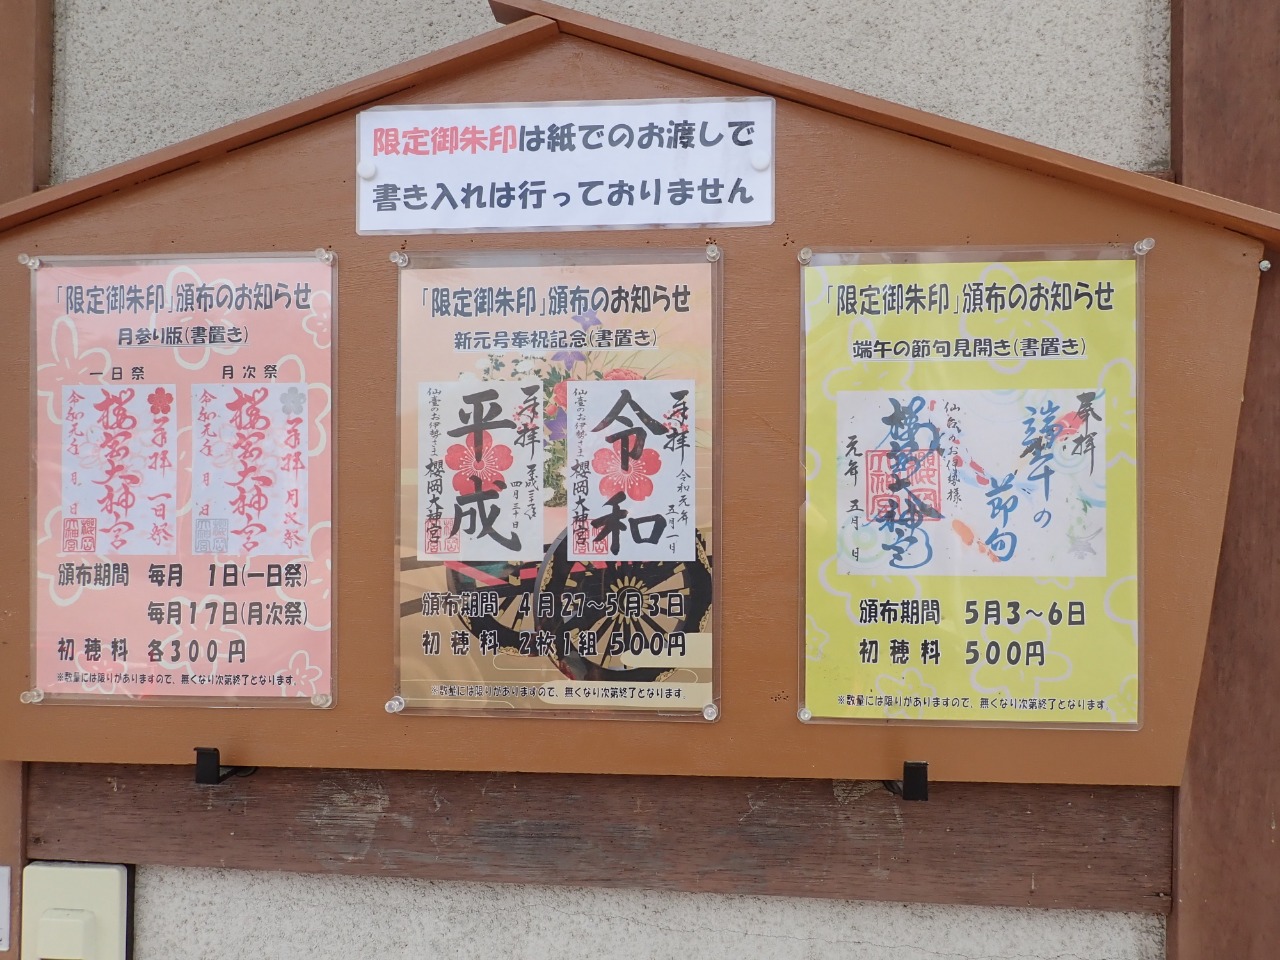 限定御朱印は紙でのお渡しで
書き入れは行っておりません
「限定御朱印」頒布のお知らせ
月参り版(書置き)
一日祭
月次祭
奉拝 一日祭
櫻岡大神宮
令和元年 月 日
奉拝 月次祭
櫻岡大神宮
令和元年 月 日
頒布期間 毎月 1日(一日祭)
毎月17日(月次祭)
初穂料 各300円
※数量には限りがありますので、無くなり次第終了となります。
「限定御朱印」頒布のお知らせ
新元号奉祝記念(書置き)
奉拝 平成三十一年
四月三十日
平成
仙臺のお伊勢さま 櫻岡大神宮
奉拝 令和元年
五月一日
令和
仙臺のお伊勢さま 櫻岡大神宮
頒布期間 4月27~5月3日
初穂料 2枚1組 500円
※数量には限りがありますので、無くなり次第終了となります。
「限定御朱印」頒布のお知らせ
端午の節句見開き(書置き)
奉拝
端午の
節句
仙台のお伊勢様
櫻岡大神宮
元年 五月 日
頒布期間 5月3~6日
初穂料 500円
※数量には限りがありますので、無くなり次第終了となります。